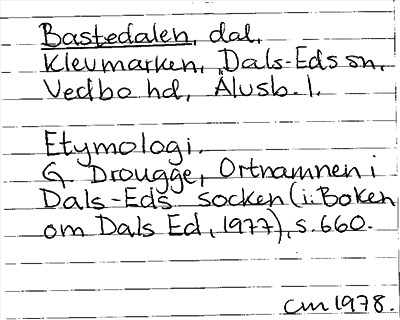 Bastedalen, dal,
Klevmarken, Dals-Eds sn,
Vedbo hd, Älvsb. l.
Etymologi.
G Drougge, Ortnamnen i
Dals-Eds socken (i: Boken
om Dals Ed, 1977), s. 660.
CM 1978.